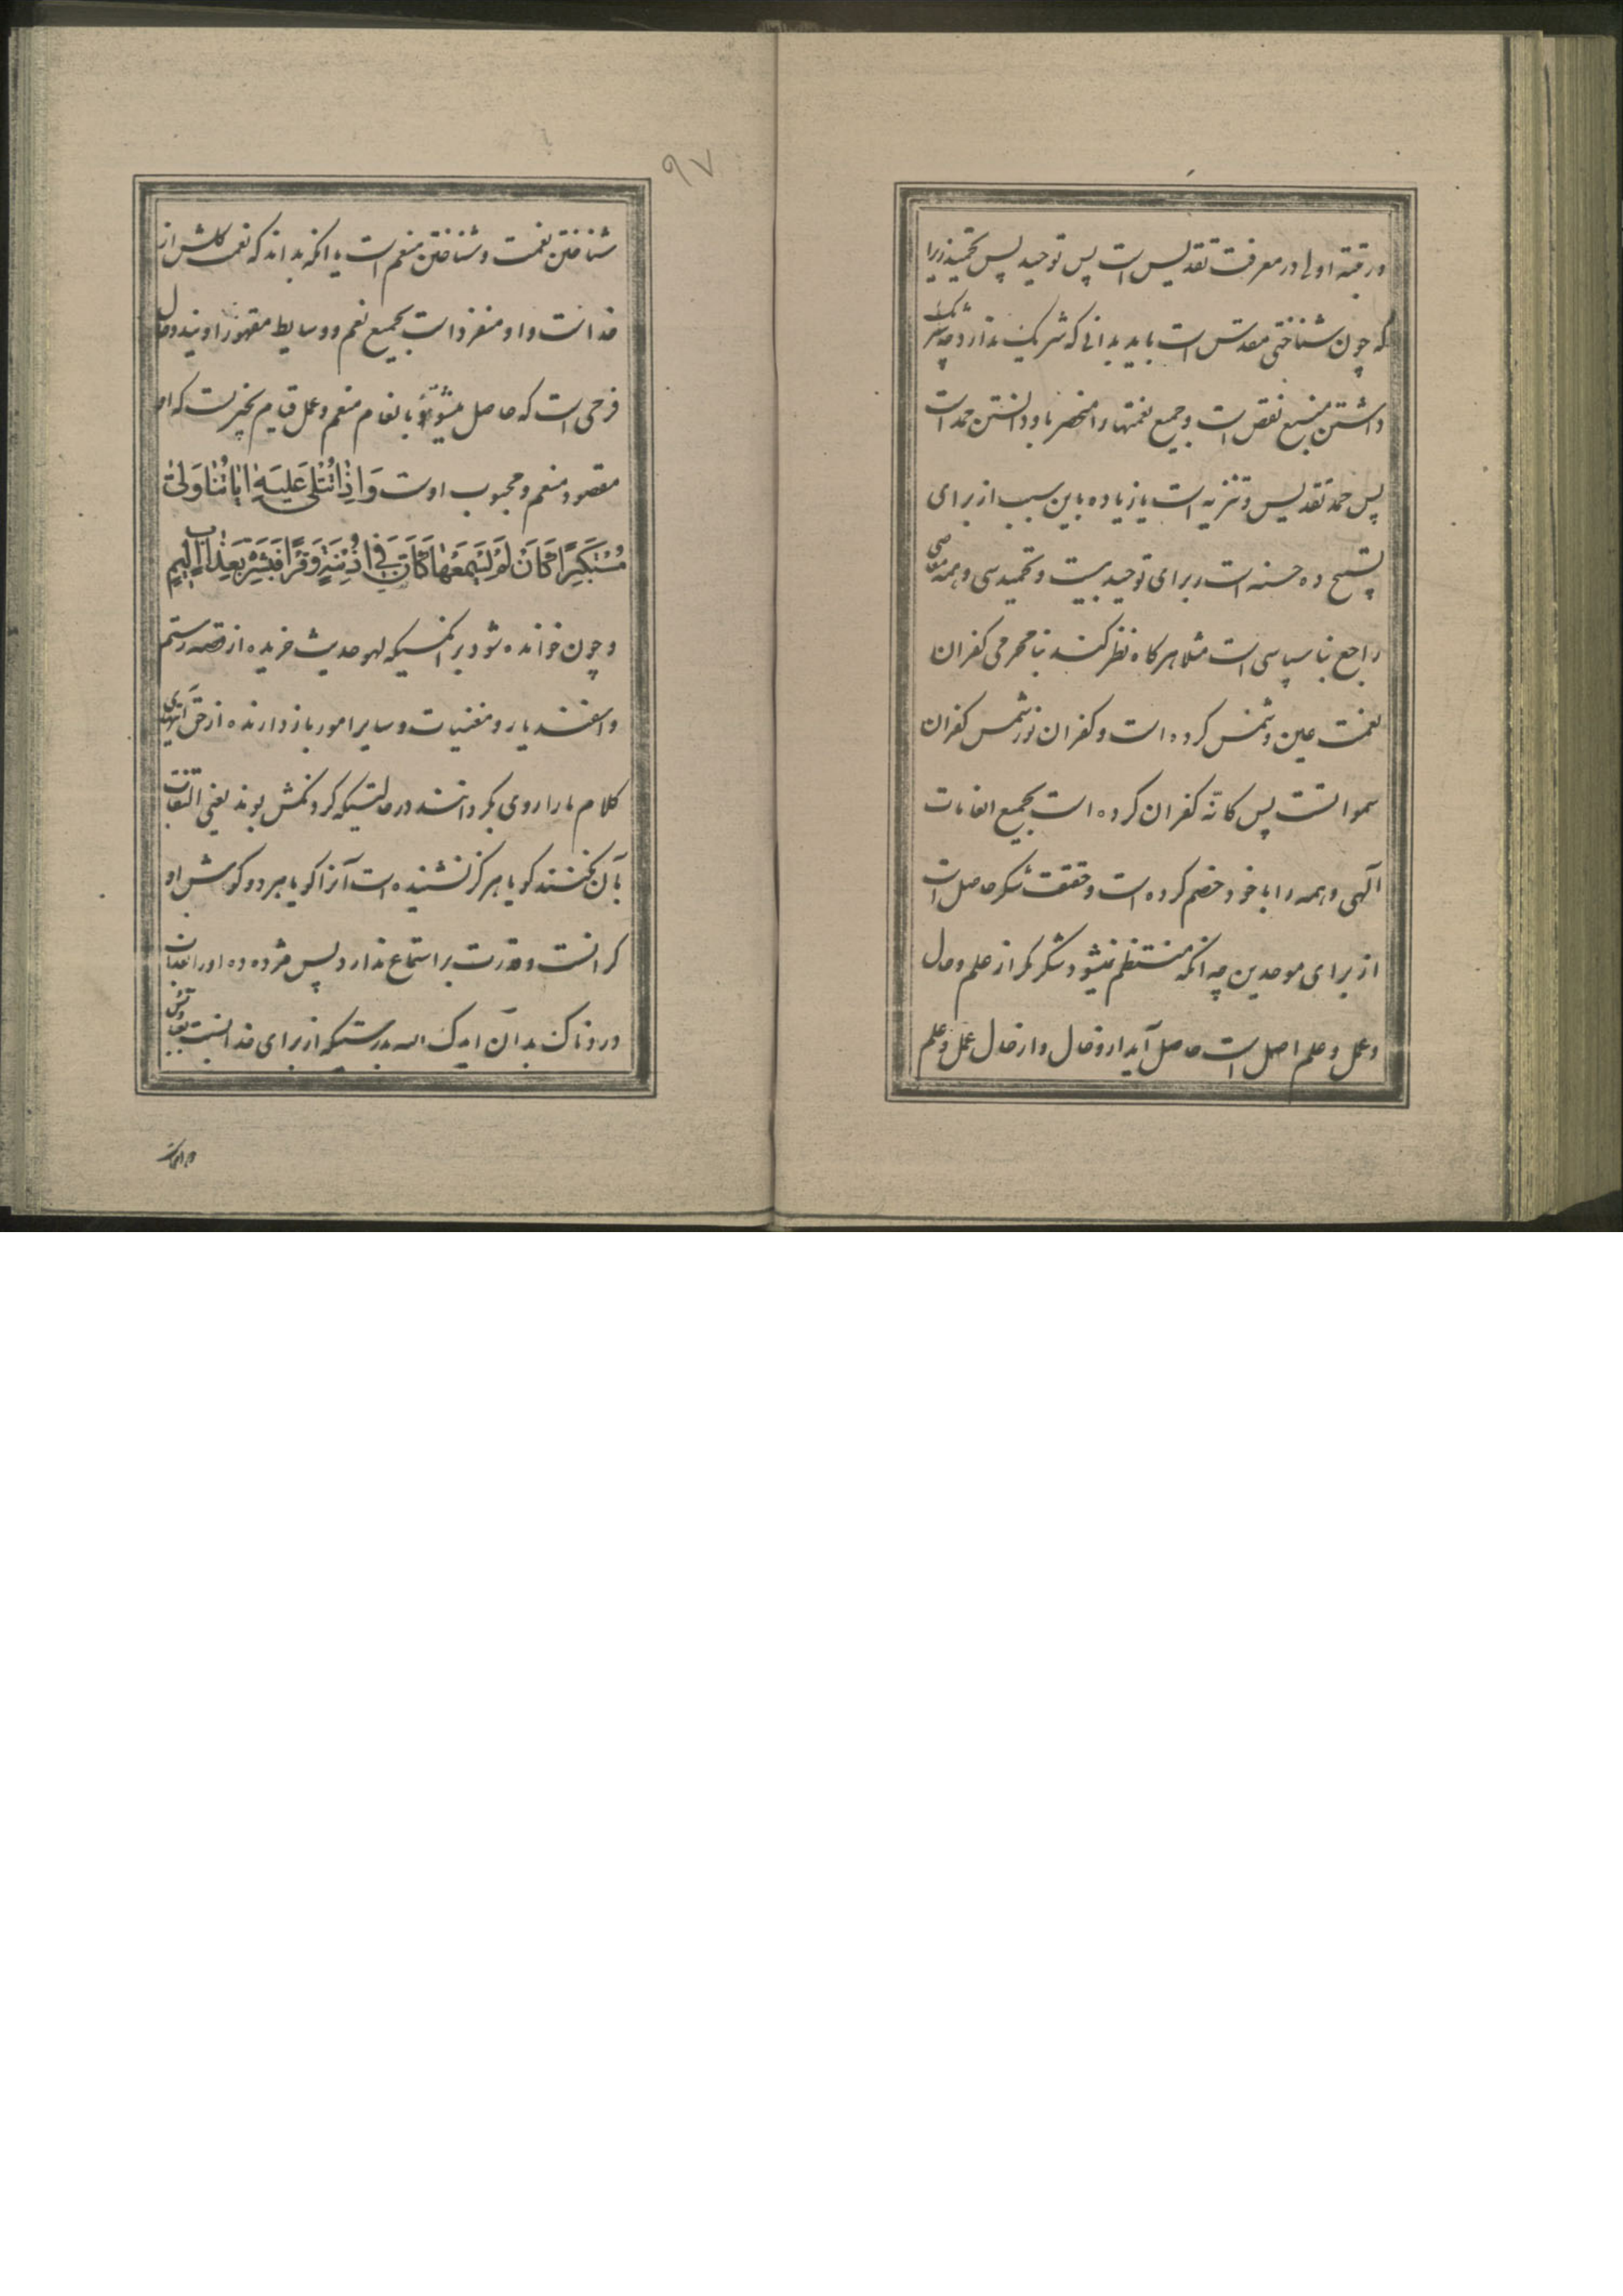 ورتبته اولی در معرفت تقدیس است پس توحید پس تحمید زیرا
که چون شناختی مقدس است باید بدانی که شریک ندارد چه شریک
داشتن منبع نقص است و جمیع نعمتها را منحصر باو دانستن حمد است
پس حمد تقدیس و تنزیه است با زیاده باین سبب از برای
تسبیح ده حسنه است و برای توحید بیست و تحمید سی و همه معاصی
راجع بناسپاسی است مثلا هرکاه نظر کند بنامحرمی کفران
نعمت عین و شمس کرده است و کفران نور شمس کفران
سمواتست پس کانّه کفران کرده است بجمیع انعامات
الهی و همه را با خود خصم کرده است و حقیقت شکر حاصل است
از برای موحدین چه انکه منتظم نمیشود شکر مکر از علم و حال
و عمل و علم اصل است حاصل آید ازو حال و از حال عمل و علم
۹۷
شناختن نعمت و شناختن منعم است با انکه بداند که نعمت کلش از
خداست و او منفرد است بجمیع نعم و وسایط مقهور اویند و حال
فرحی است که حاصل میشود بانعام منعم و عمل قیام بچیزیست که او
مقصود منعم و محبوب اوست وَاِذا تُتْلی عَلَیهِ ایاتُنا وَلّی
مُسْتَکبِرًا کَاَنْ لَمْ یَسْمَعْها کَاَنَّ فی اُذُنَیهِ وَقْرًا فَبَشِّرْهُ بِعَذابٍ اَلیمٍ
و چون خوانده شود بر انکسیکه لهو حدیث خریده از قصه رستم
و اسفندیار و مغنیات و سایر امور بازدارنده از حق آیتهای
کلام ما را روی بکردانند در حالتیکه کردنکش بوند یعنی التفات
بآن نکنند کویا هرکز نشنیده است آنرا کویا هر دو کوش او
کرانست و قدرت بر استماع ندارد پس مژده ده او را بعذاب
دردناک بدان ایدک الله بدرستیکه از برای خدا نیست